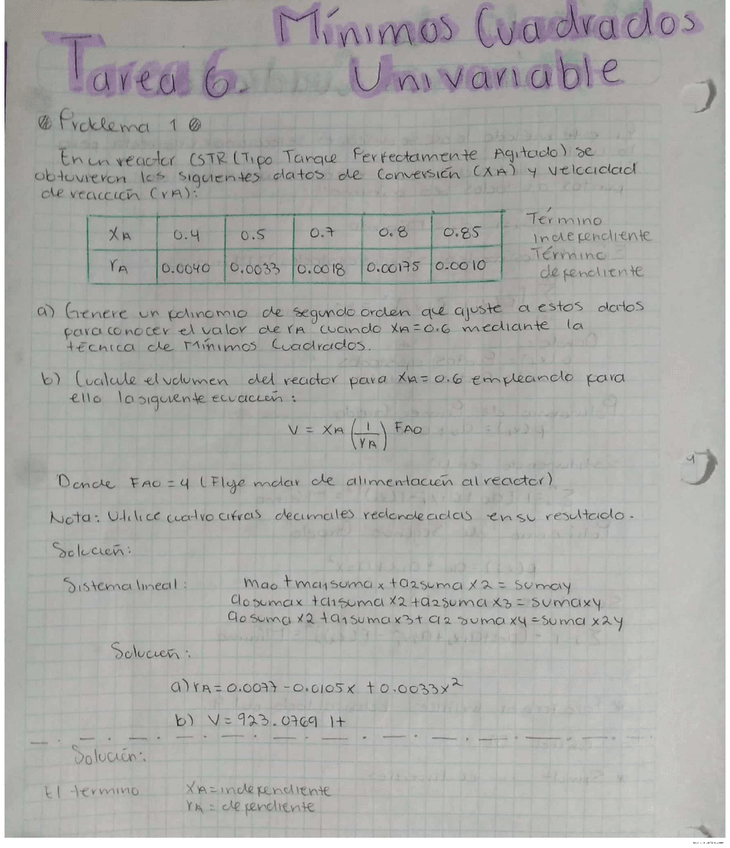 Mínimos Cuadrados
Tarea 6. Univariable
Problema 1
En un reactor CSTR (Tipo Tanque Perfectamente Agitado) se
obtuvieron los siguientes datos de conversión (XA) y velocidad
de reacción (rA):
XA 0.4 0.5 0.7 0.8 0.85
rA 0.0040 0.0033 0.0018 0.00175 0.0010
Término
independiente
Término
dependiente
a) Genere un polinomio de segundo orden que ajuste a estos datos
para conocer el valor de rA cuando XA=0.6 mediante la
técnica de Mínimos Cuadrados.
b) Calcule el volumen del reactor para XA=0.6 empleando para
ello la siguiente ecuación:
V = XA (1/rA) FAO
Donde FAO=4 (Flujo molar de alimentación al reactor)
Nota: Utilice cuatro cifras decimales redondeadas en su resultado.
Solución:
Sistema lineal: ma0 + ma1sumax + a2suma x2 = sumay
a0sumax + a1suma x2 + a2suma x3 = sumaxy
a0suma x2 + a1suma x3 + a2 suma x4 = suma x2y
Solución:
a) rA = 0.0077 - 0.0105x + 0.0033x²
b) V = 923.0769 lt
Solución:
El termino XA = independiente
rA = dependiente